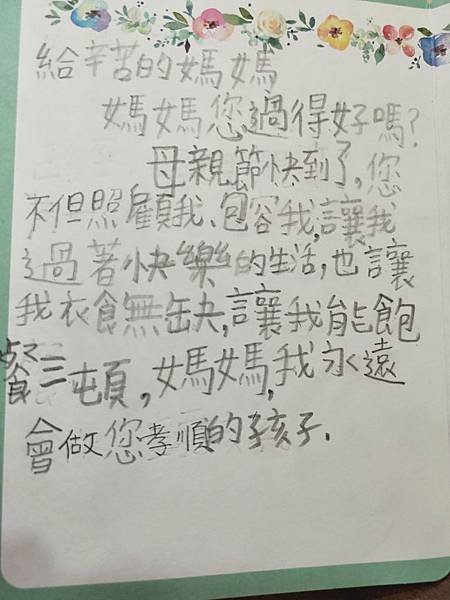 給辛苦的媽媽
媽媽您過得好嗎?
母親節快到了,您
不但照顧我、包容我,讓我
過著快樂的生活,也讓
我衣食無缺,讓我能飽
餐三頓,媽媽,我永遠
會做您孝順的孩子.